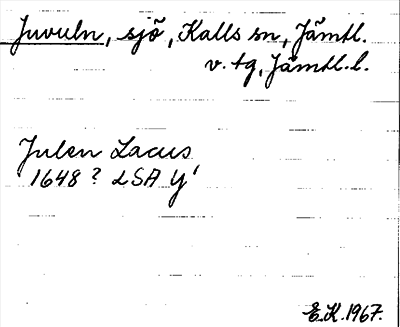 Juvuln, sjö, Kalls sn, Jämtl.
v. tg, Jämtl. l.
Julen Lacus
1648 ? LSA Y'
E.K. 1967.